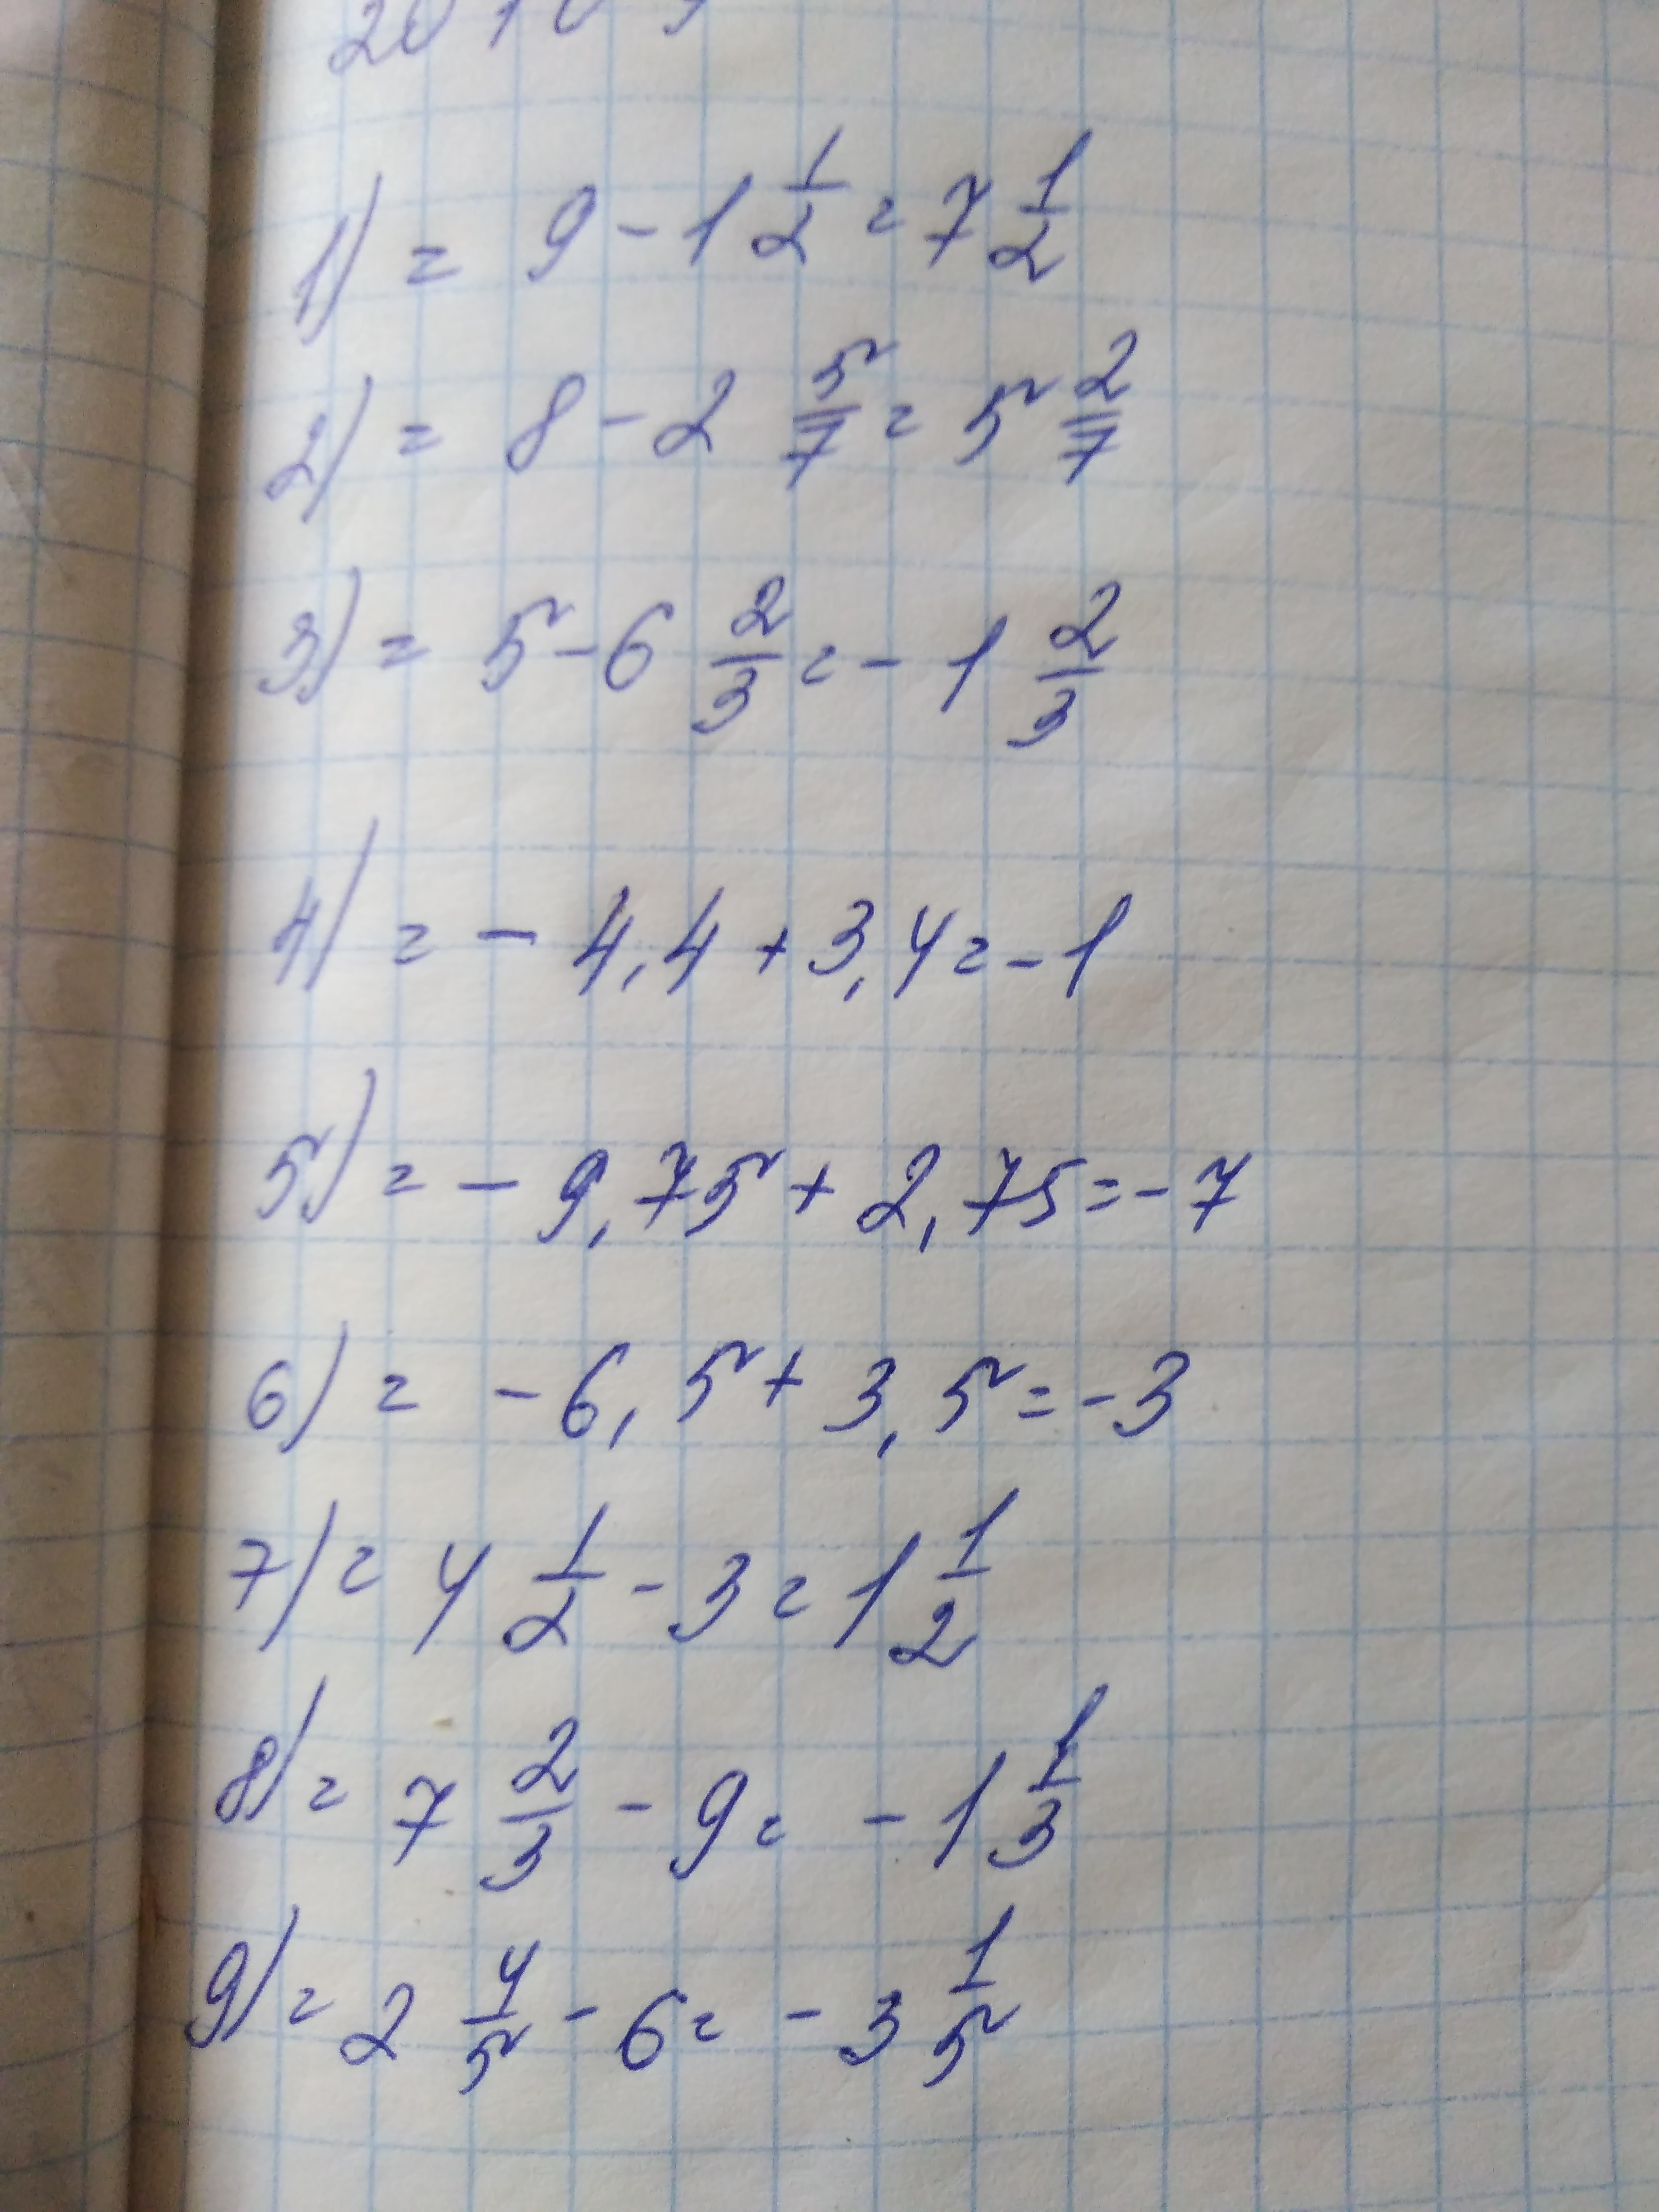 1) = 9 - 1 1/2 = 7 1/2
2) = 8 - 2 5/7 = 5 2/7
3) = 5 - 6 2/3 = - 1 2/3
4) = - 4,4 + 3,4 = - 1
5) = - 9,75 + 2,75 = - 7
6) = - 6,5 + 3,5 = - 3
7) = 4 1/2 - 3 = 1 1/2
8) = 7 2/3 - 9 = - 1 1/3
9) = 2 4/5 - 6 = - 3 1/5